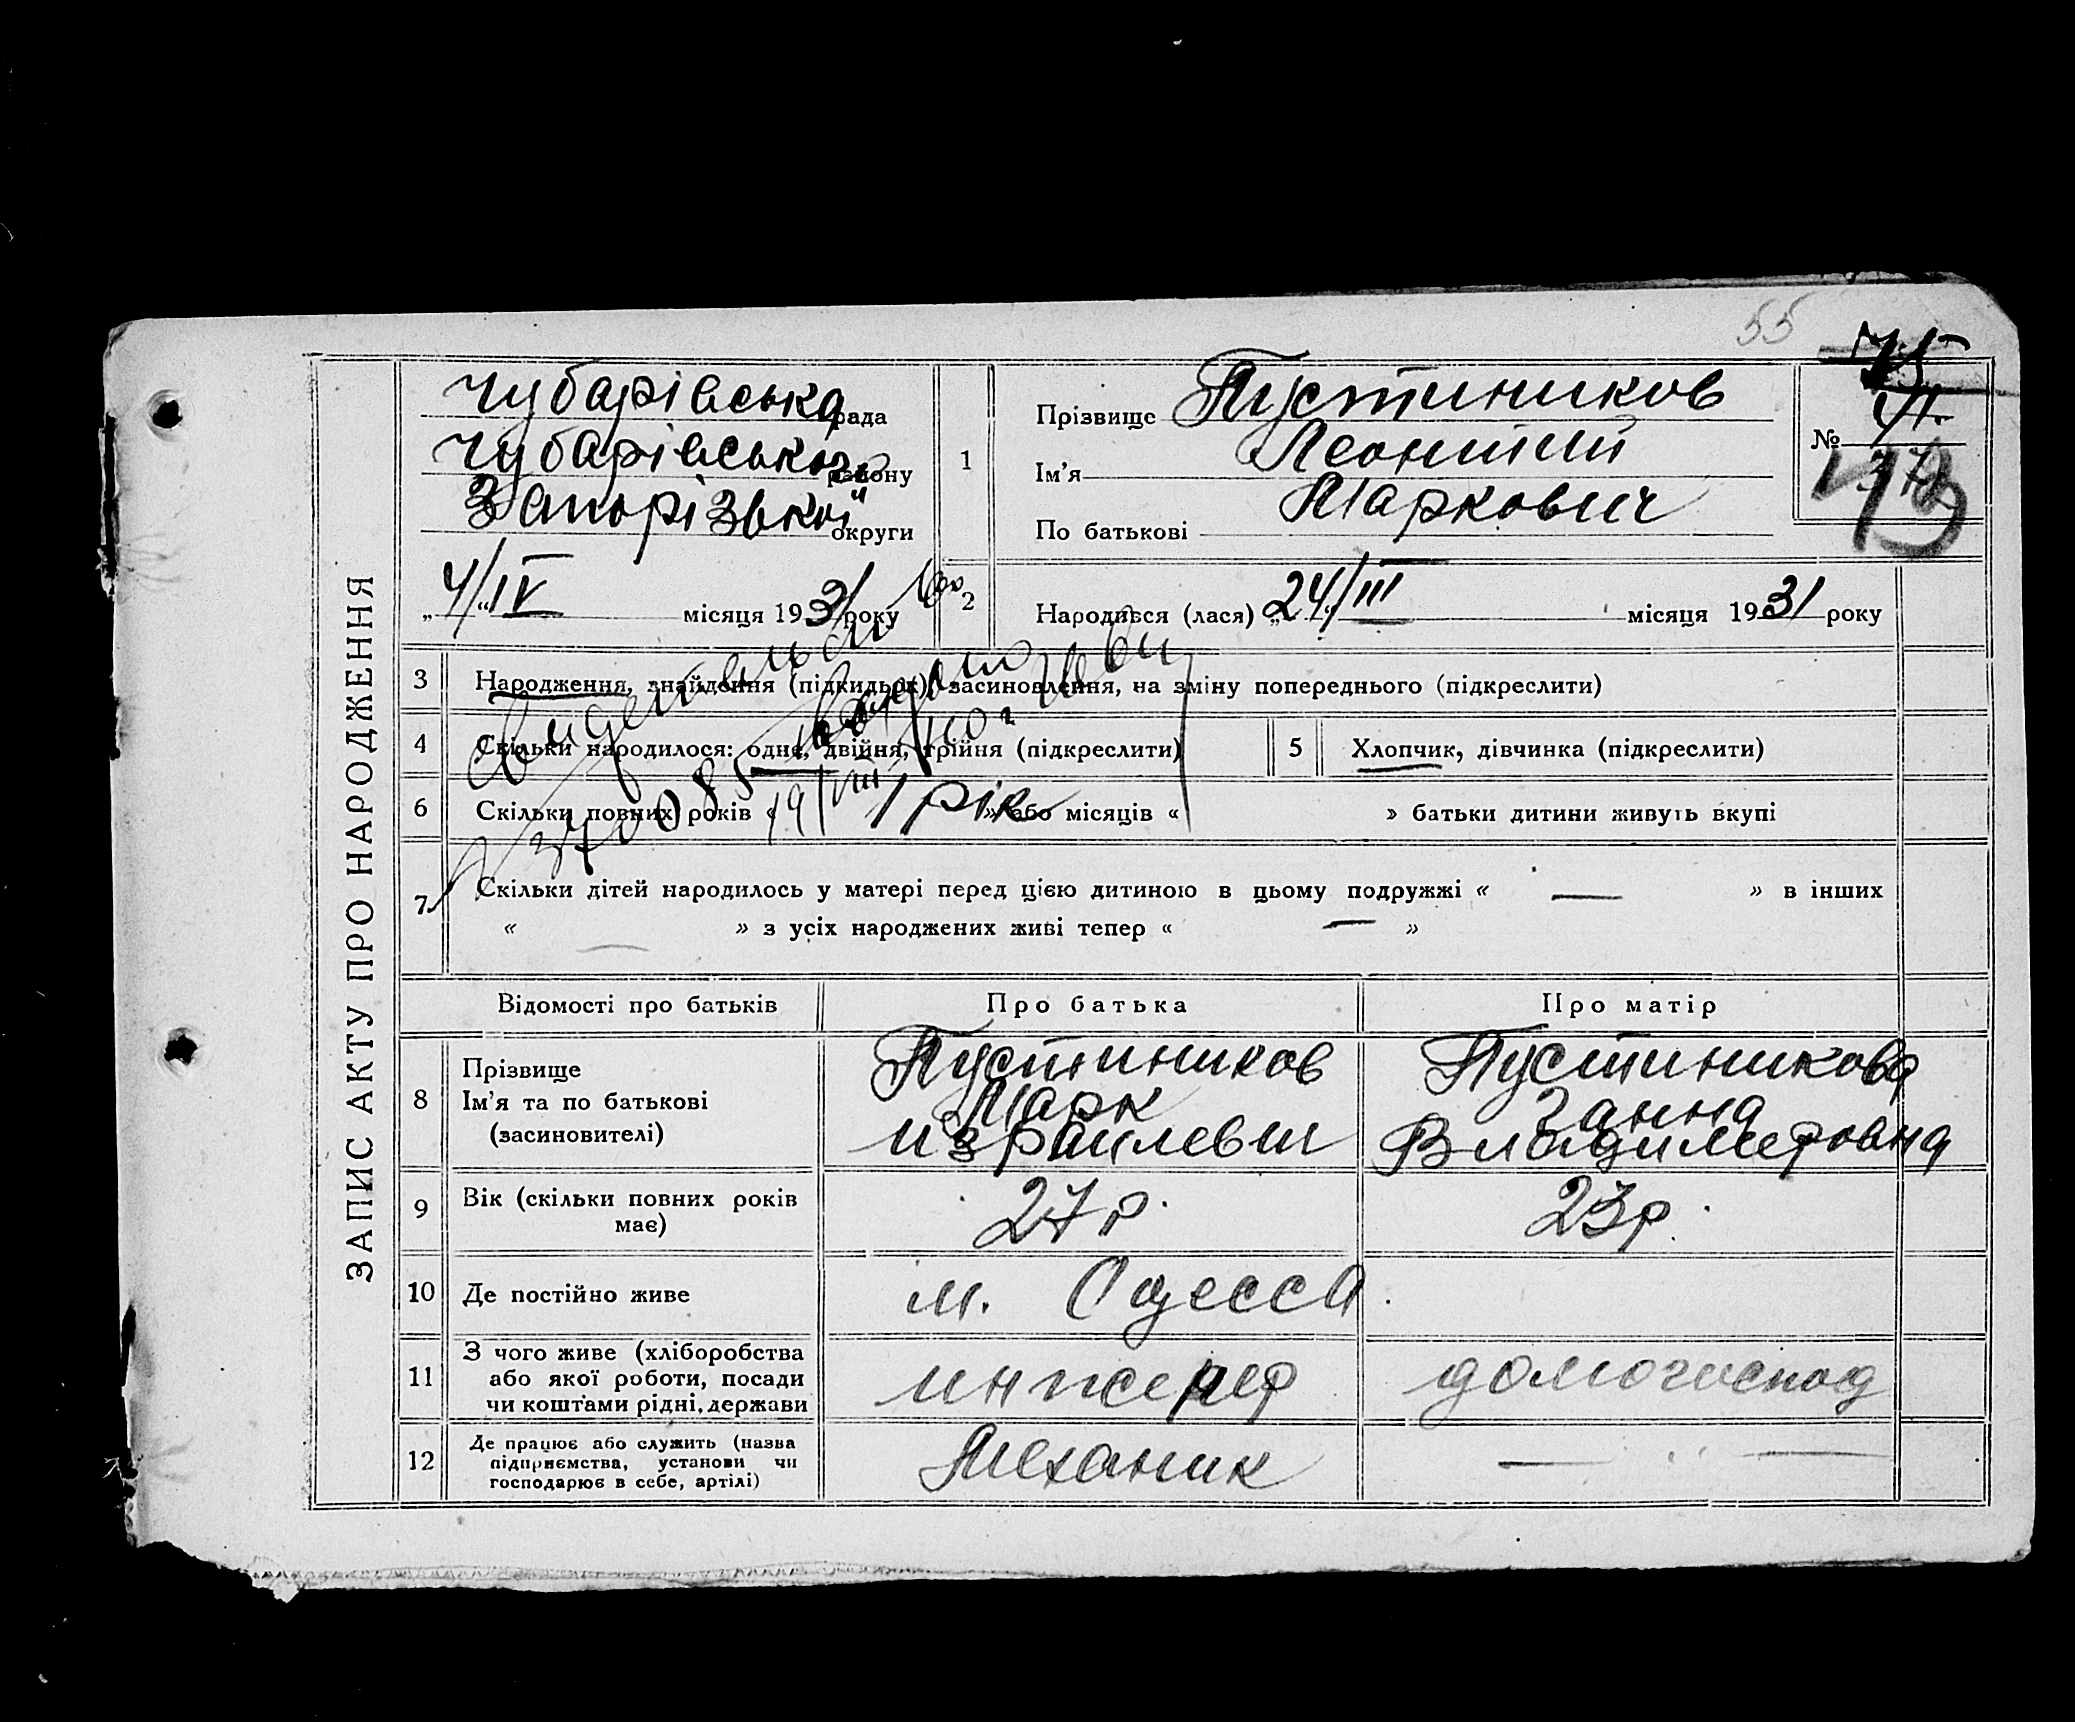 55
ЗАПИС АКТУ ПРО НАРОДЖЕННЯ
Чубарівська рада
Чубарівського району
Запорізької округи
„4/IV“ місяця 1931 року
1
Прізвище Пустиников
Ім'я Леонтий
По батькові Маркович
№
2
Народився (лася) „24/III місяця 1931 року
3 Народження, знайдення (підкидьок), засиновлення, на зміну попереднього (підкреслити)
4 Скільки народилося: одне, двійня, трійня (підкреслити)
5 Хлопчик, дівчинка (підкреслити)
6 Скільки повних років « 1 рік » або місяців « » батьки дитини живуть вкупі
7 Скільки дітей народилось у матері перед цією дитиною в цьому подружжі « — » в інших
« — » з усіх народжених живі тепер « — »
Свидетельство
19/VIII
Відомості про батьків
Про батька
Про матір
8 Прізвище
Ім'я та по батькові
(засиновителі)
Пустиников
Марк
Израилевич
Пустиникова
Ганна
Владимеровна
9 Вік (скільки повних років
має)
27 р.
23 р.
10 Де постійно живе
м. Одесса.
11 З чого живе (хліборобства
або якої роботи, посади
чи коштами рідні, держави
инженер
домогоспод
12 Де працює або служить (назва
підприємства, установи чи
господарює в себе, артілі)
Механик
— " —